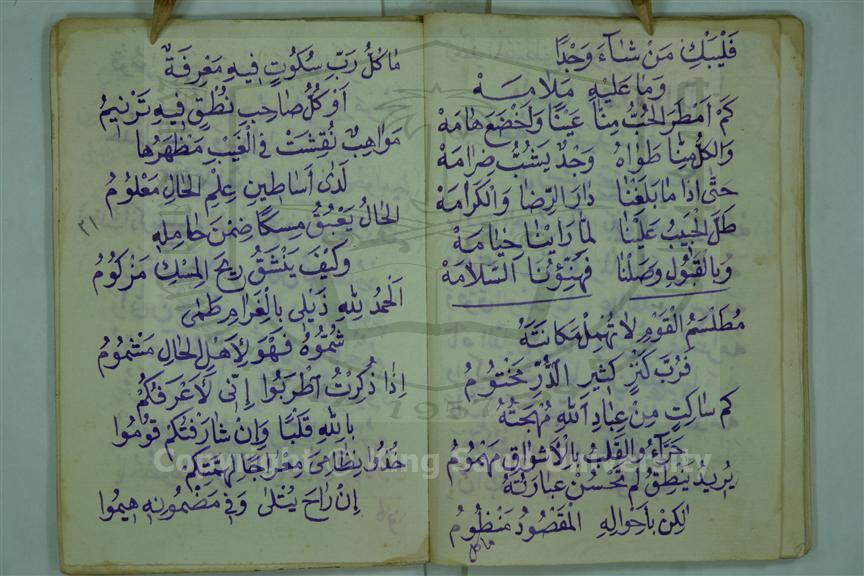 فَلْيَبْكِ مَنْ شَآءَ وَجْدًا
وَمَا عَلَيْهِ مَلَامَهْ
كَمْ اَمْطَرَ الْحُبُّ مِنَّا عَيْنًا وَاَخْضَعَ هَامَهْ
وَالْكُلُّ مِنَّا طَوَاهُ وَجْدٌ يَشُبُّ ضِرَامَهْ
حَتَّى اِذَا مَا بَلَغْنَا دَارَ الرِّضَا وَالْكَرَامَهْ
طَلَّ الْحَبِيبُ عَلَيْنَا لَمَّا رَاَيْنَا خِيَامَهْ
وَبِالْقَبُولِ وَصَلْنَا فَهَنِّؤُنَا السَّلَامَهْ
مُطَلْسَمُ الْقَوْمِ لَا تُهْمِلْ مَكَانَتَهُ
فَرُبَّ كَنْزٍ كَثِيرِ الدُّرِّ مَخْتُومُ
كَمْ سَاكِتٍ مِنْ عِبَادِ اللهِ مُهْجَتُهُ
حَرَّاءُ وَالْقَلْبُ بِالْاَشْوَاقِ مَهْمُومُ
يُرِيدُ يَنْطِقُ لَمْ تَحْسُنْ عِبَارَتُهُ
لٰكِنْ بِاَحْوَالِهِ الْمَقْصُودُ مَنْظُومُ
ما كل
مَا كُلُّ رَبِّ سُكُوتٍ فِيهِ مَعْرِفَةٌ
اَوْ كُلُّ صَاحِبِ نُطْقٍ فِيهِ تَرْنِيمُ
مَوَاهِبٌ نُقِشَتْ فِي الْغَيْبِ مَظْهَرُهَا
لَدٰى اَسَاطِينِ عِلْمِ الْحَالِ مَعْلُومُ
الْحَالُ يَعْبُقُ مِسْكًا ضِمْنَ حَامِلِهِ
وَكَيْفَ يَنْشَقُ رِيحَ الْمِسْكِ مَزْكُومُ
٢١
اَلْحَمْدُ لِلهِ ذَيْلِى بِالْغَرَامِ طَمٰى
شُمُّوهُ فَهْوَ لِاَهْلِ الْحَالِ مَشْمُومُ
اِذَا ذُكِرْتُ اطْرَبُوا اِنِّى لَاَعْرِفُكُمْ
بِاللهِ قَلْبًا وَاِنْ شَارَفْتُكُمْ قُومُوا
خُذُوا نِظَامِىَ مِعْرَاجًا لِهِمَّتِكُمْ
اِنْ رَاحَ يُتْلٰى وَفِى مَضْمُونِهِ هِيمُوا
Copyright © King Saud University
1957